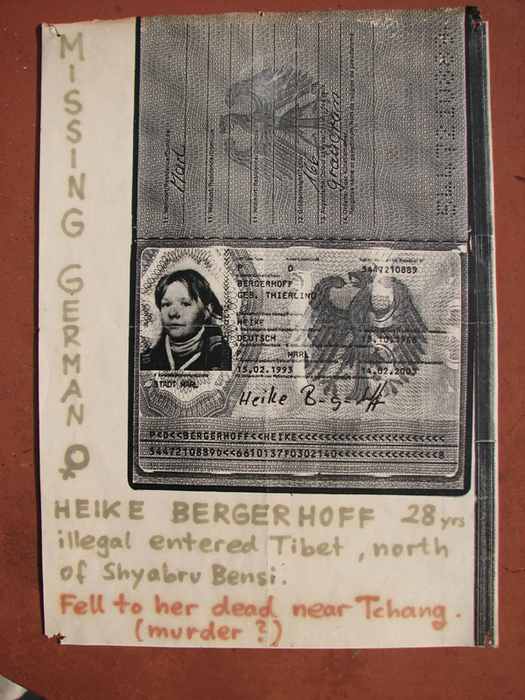 MISSING GERMAN ♀
Marl
166
graugrün
P D 5447210889
BERGERHOFF
GEB. THIERLING
HEIKE
DEUTSCH 13.10.1966
F MARL
15.02.1993 14.02.2003
STADT MARL
Heike B-g-ff
P<D<<BERGERHOFF<<HEIKE<<<<<<<<<<<<<<<<<<<<<
5447210889D<<6610137F0302140<<<<<<<<<<<<<<<8
HEIKE BERGERHOFF 28 yrs
illegal entered Tibet, north
of Shyabru Bensi.
Fell to her dead near Tchang.
(murder?)